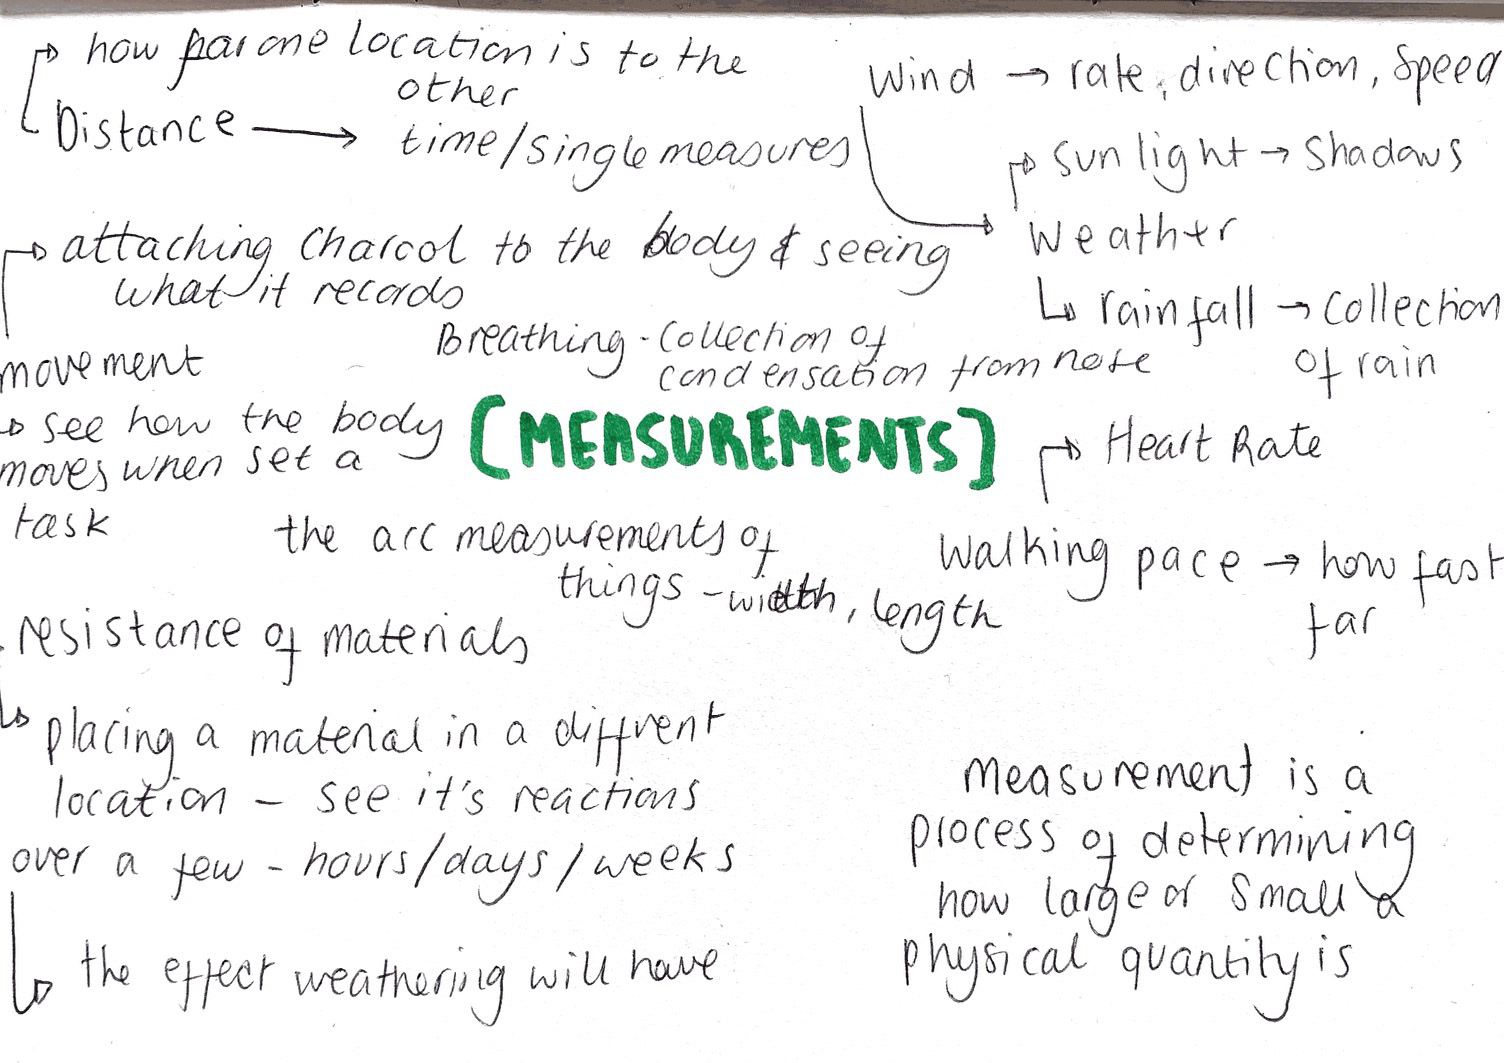 how far one location is to the
other
Distance → time/single measures
Wind → rate, direction, Speed
Sunlight → Shadows
Weather
rainfall → Collection
of rain
attaching Charcol to the body & seeing
what it records
movement
Breathing - Collection of
condensation from nose
see how the body
moves when set a
task
[MEASUREMENTS]
Heart Rate
Walking pace → how fast
far
the arc measurements of
things - width, length
resistance of materials
placing a material in a diffrent
location - see it's reactions
over a few - hours/days/weeks
the effect weathering will have
Measurement is a
process of determining
how large or Small a
physical quantity is